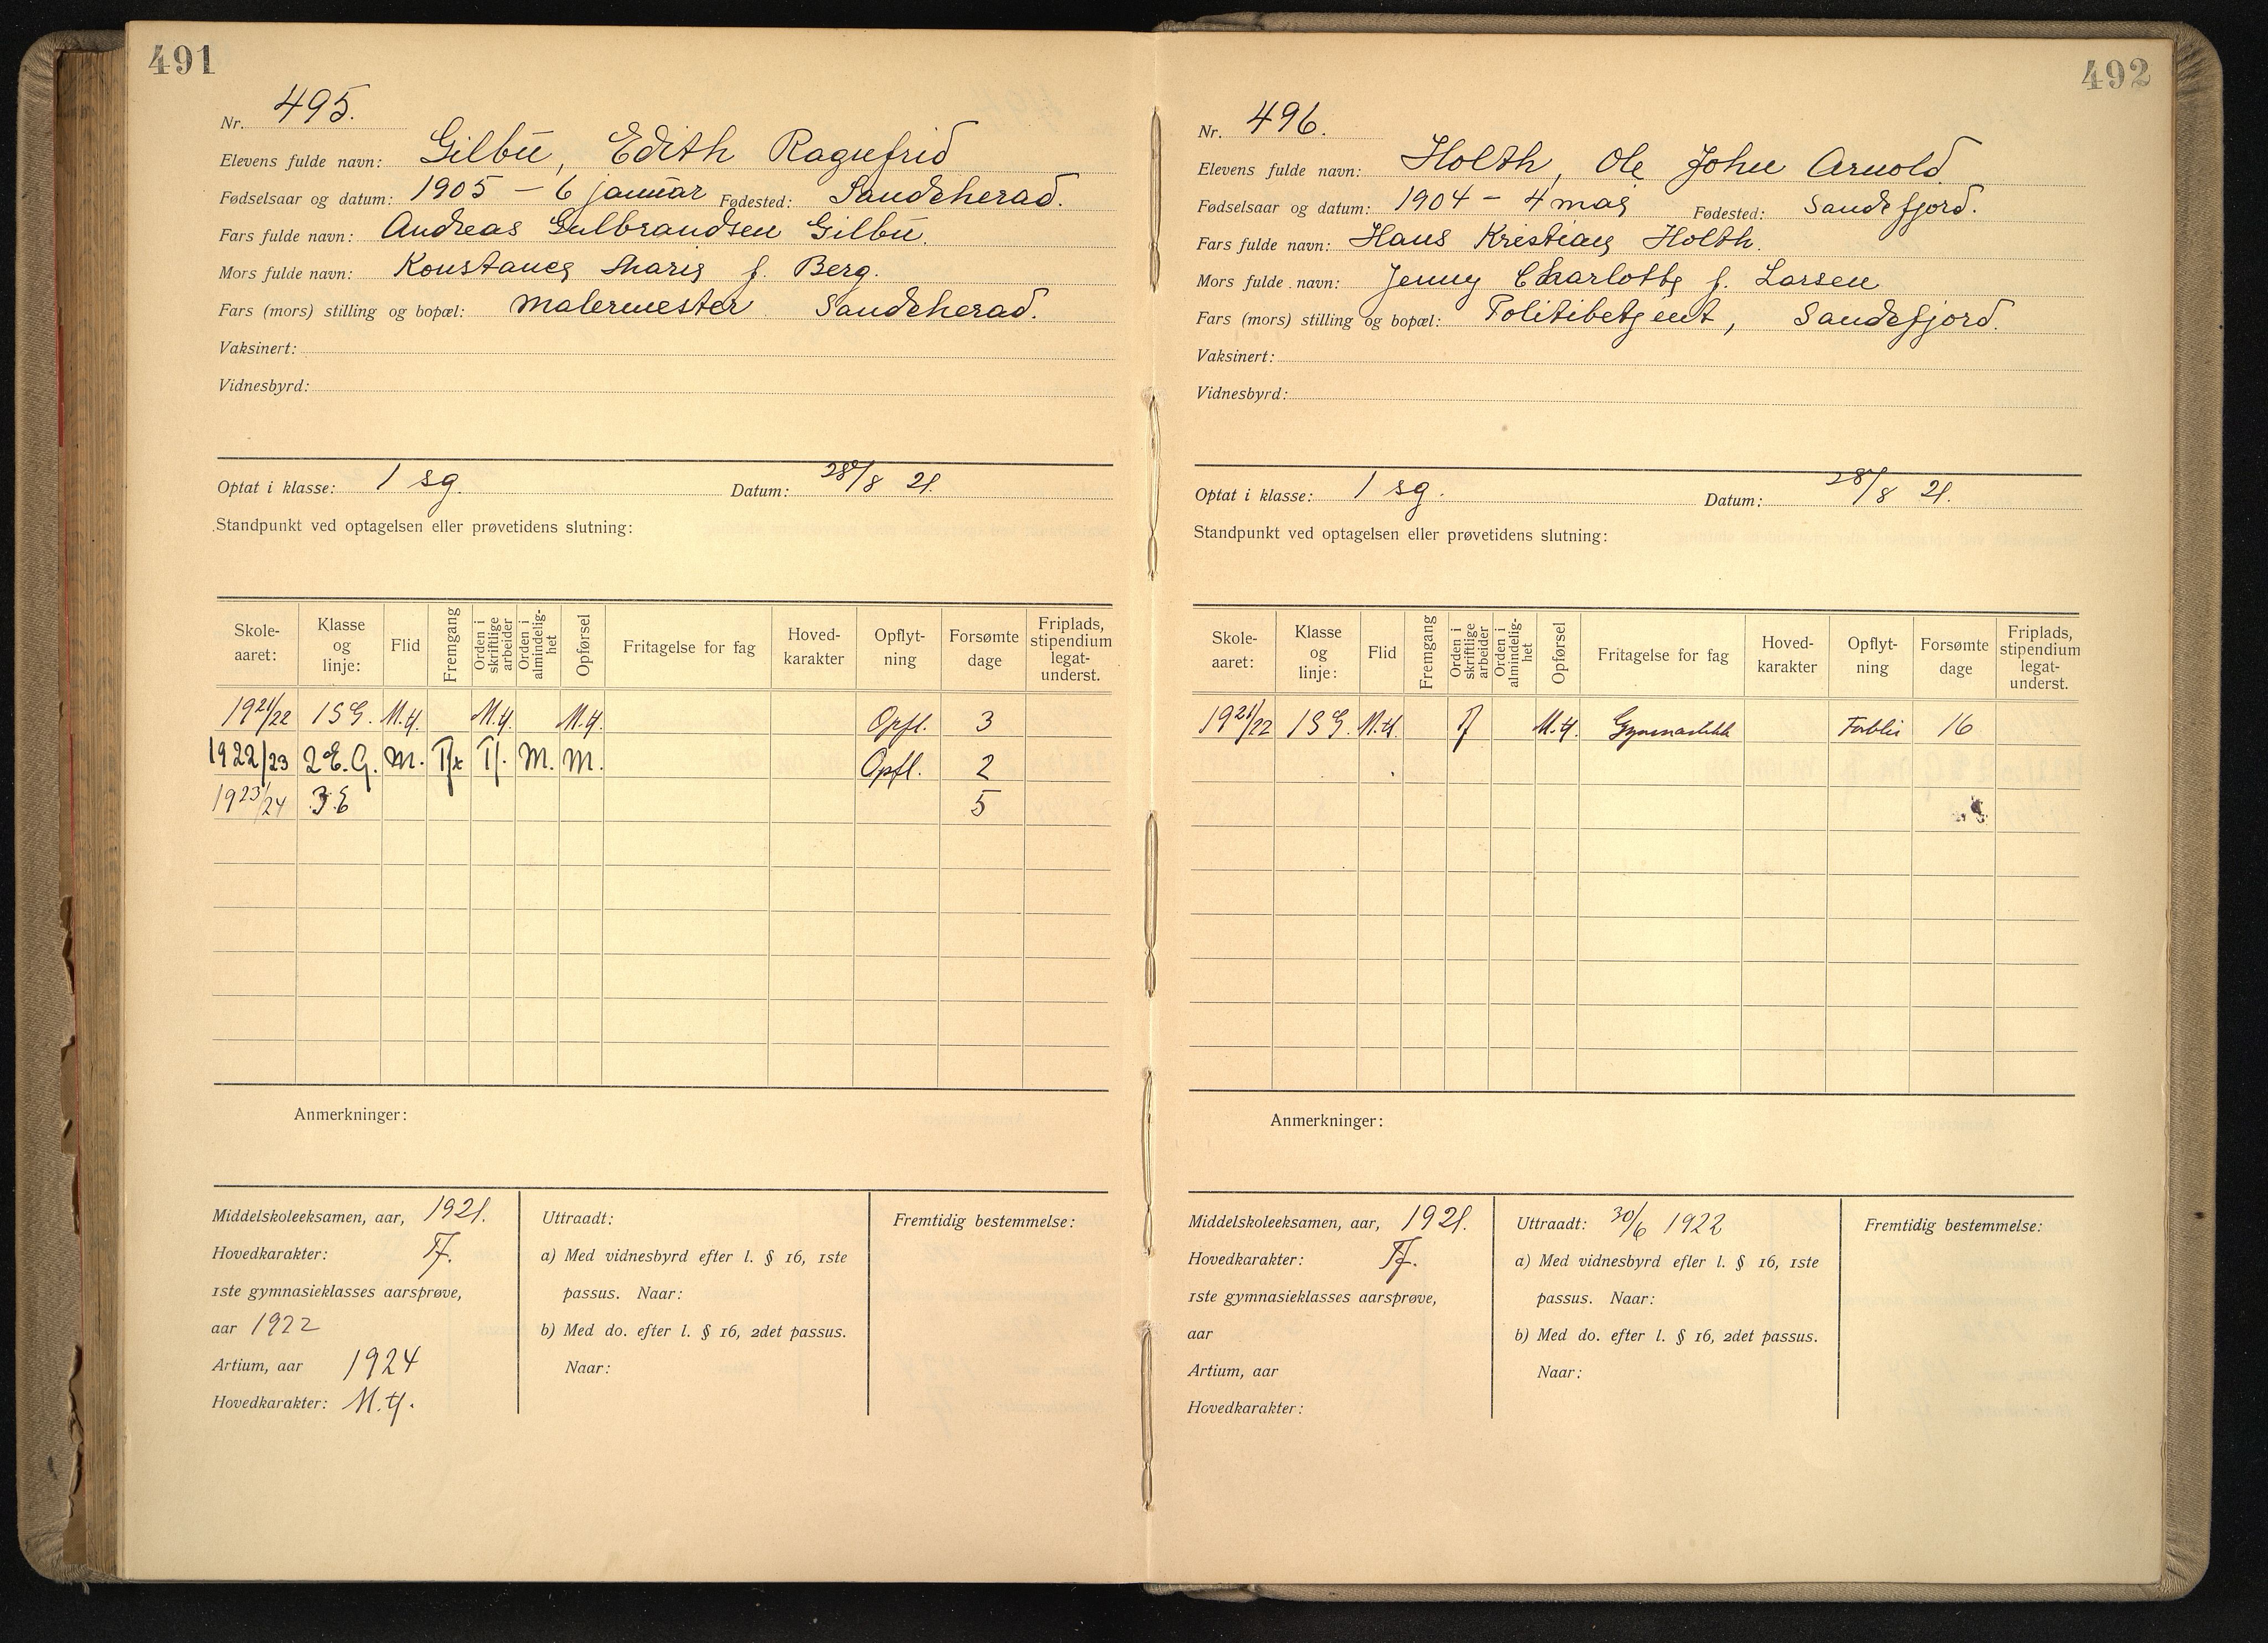 491
Nr. 495.
Elevens fulde navn: Gilbū, Edith Ragnfrid
Fødselsaar og datum: 1905 – 6 januar Fødested: Sandeherad.
Fars fulde navn: Andreas Gulbrandsen Gilbū.
Mors fulde navn: Konstance Marie f. Berg.
Fars (mors) stilling og bopæl: Malermester Sandeherad.
Vaksinert:
Vidnesbyrd:
Optat i klasse: 1 sg. Datum: 28/8 21.
Standpunkt ved optagelsen eller prøvetidens slutning:
Skole-aaret: Klasse og linje: Flid Fremgang Orden i skriftlige arbeider Orden i almindelig-het Opførsel Fritagelse for fag Hoved-karakter Opflyt-ning Forsømte dage Friplads, stipendium legat-underst.
1921/22 1SG. M.tf. M.tf. M.tf. Opfl. 3
1922/23 2E.G. M. Tfx Tf. M. M. Opfl. 2
1923/24 3.E 5
Anmerkninger:
Middelskoleeksamen, aar, 1921.
Hovedkarakter: Tf.
1ste gymnasieklasses aarsprøve,
aar 1922
Artium, aar 1924
Hovedkarakter: M.tf.
Uttraadt:
a) Med vidnesbyrd efter l. § 16, 1ste
passus. Naar:
b) Med do. efter l. § 16, 2det passus.
Naar:
Fremtidig bestemmelse:
492
Nr. 496.
Elevens fulde navn: Holth, Ole John Arnold
Fødselsaar og datum: 1904 – 4 mai Fødested: Sandefjord.
Fars fulde navn: Hans Kristian Holth.
Mors fulde navn: Jenny Charlotte f. Larsen
Fars (mors) stilling og bopæl: Politibetjent, Sandefjord.
Vaksinert:
Vidnesbyrd:
Optat i klasse: 1 sg. Datum: 28/8 21.
Standpunkt ved optagelsen eller prøvetidens slutning:
Skole-aaret: Klasse og linje: Flid Fremgang Orden i skriftlige arbeider Orden i almindelig-het Opførsel Fritagelse for fag Hoved-karakter Opflyt-ning Forsømte dage Friplads, stipendium legat-underst.
1921/22 1SG. M.tf. Tf M.tf. Gymnastikk Forblir 16
Anmerkninger:
Middelskoleeksamen, aar, 1921.
Hovedkarakter: Tf.
1ste gymnasieklasses aarsprøve,
aar
Artium, aar
Hovedkarakter:
Uttraadt: 30/6 1922
a) Med vidnesbyrd efter l. § 16, 1ste
passus. Naar:
b) Med do. efter l. § 16, 2det passus.
Naar:
Fremtidig bestemmelse: